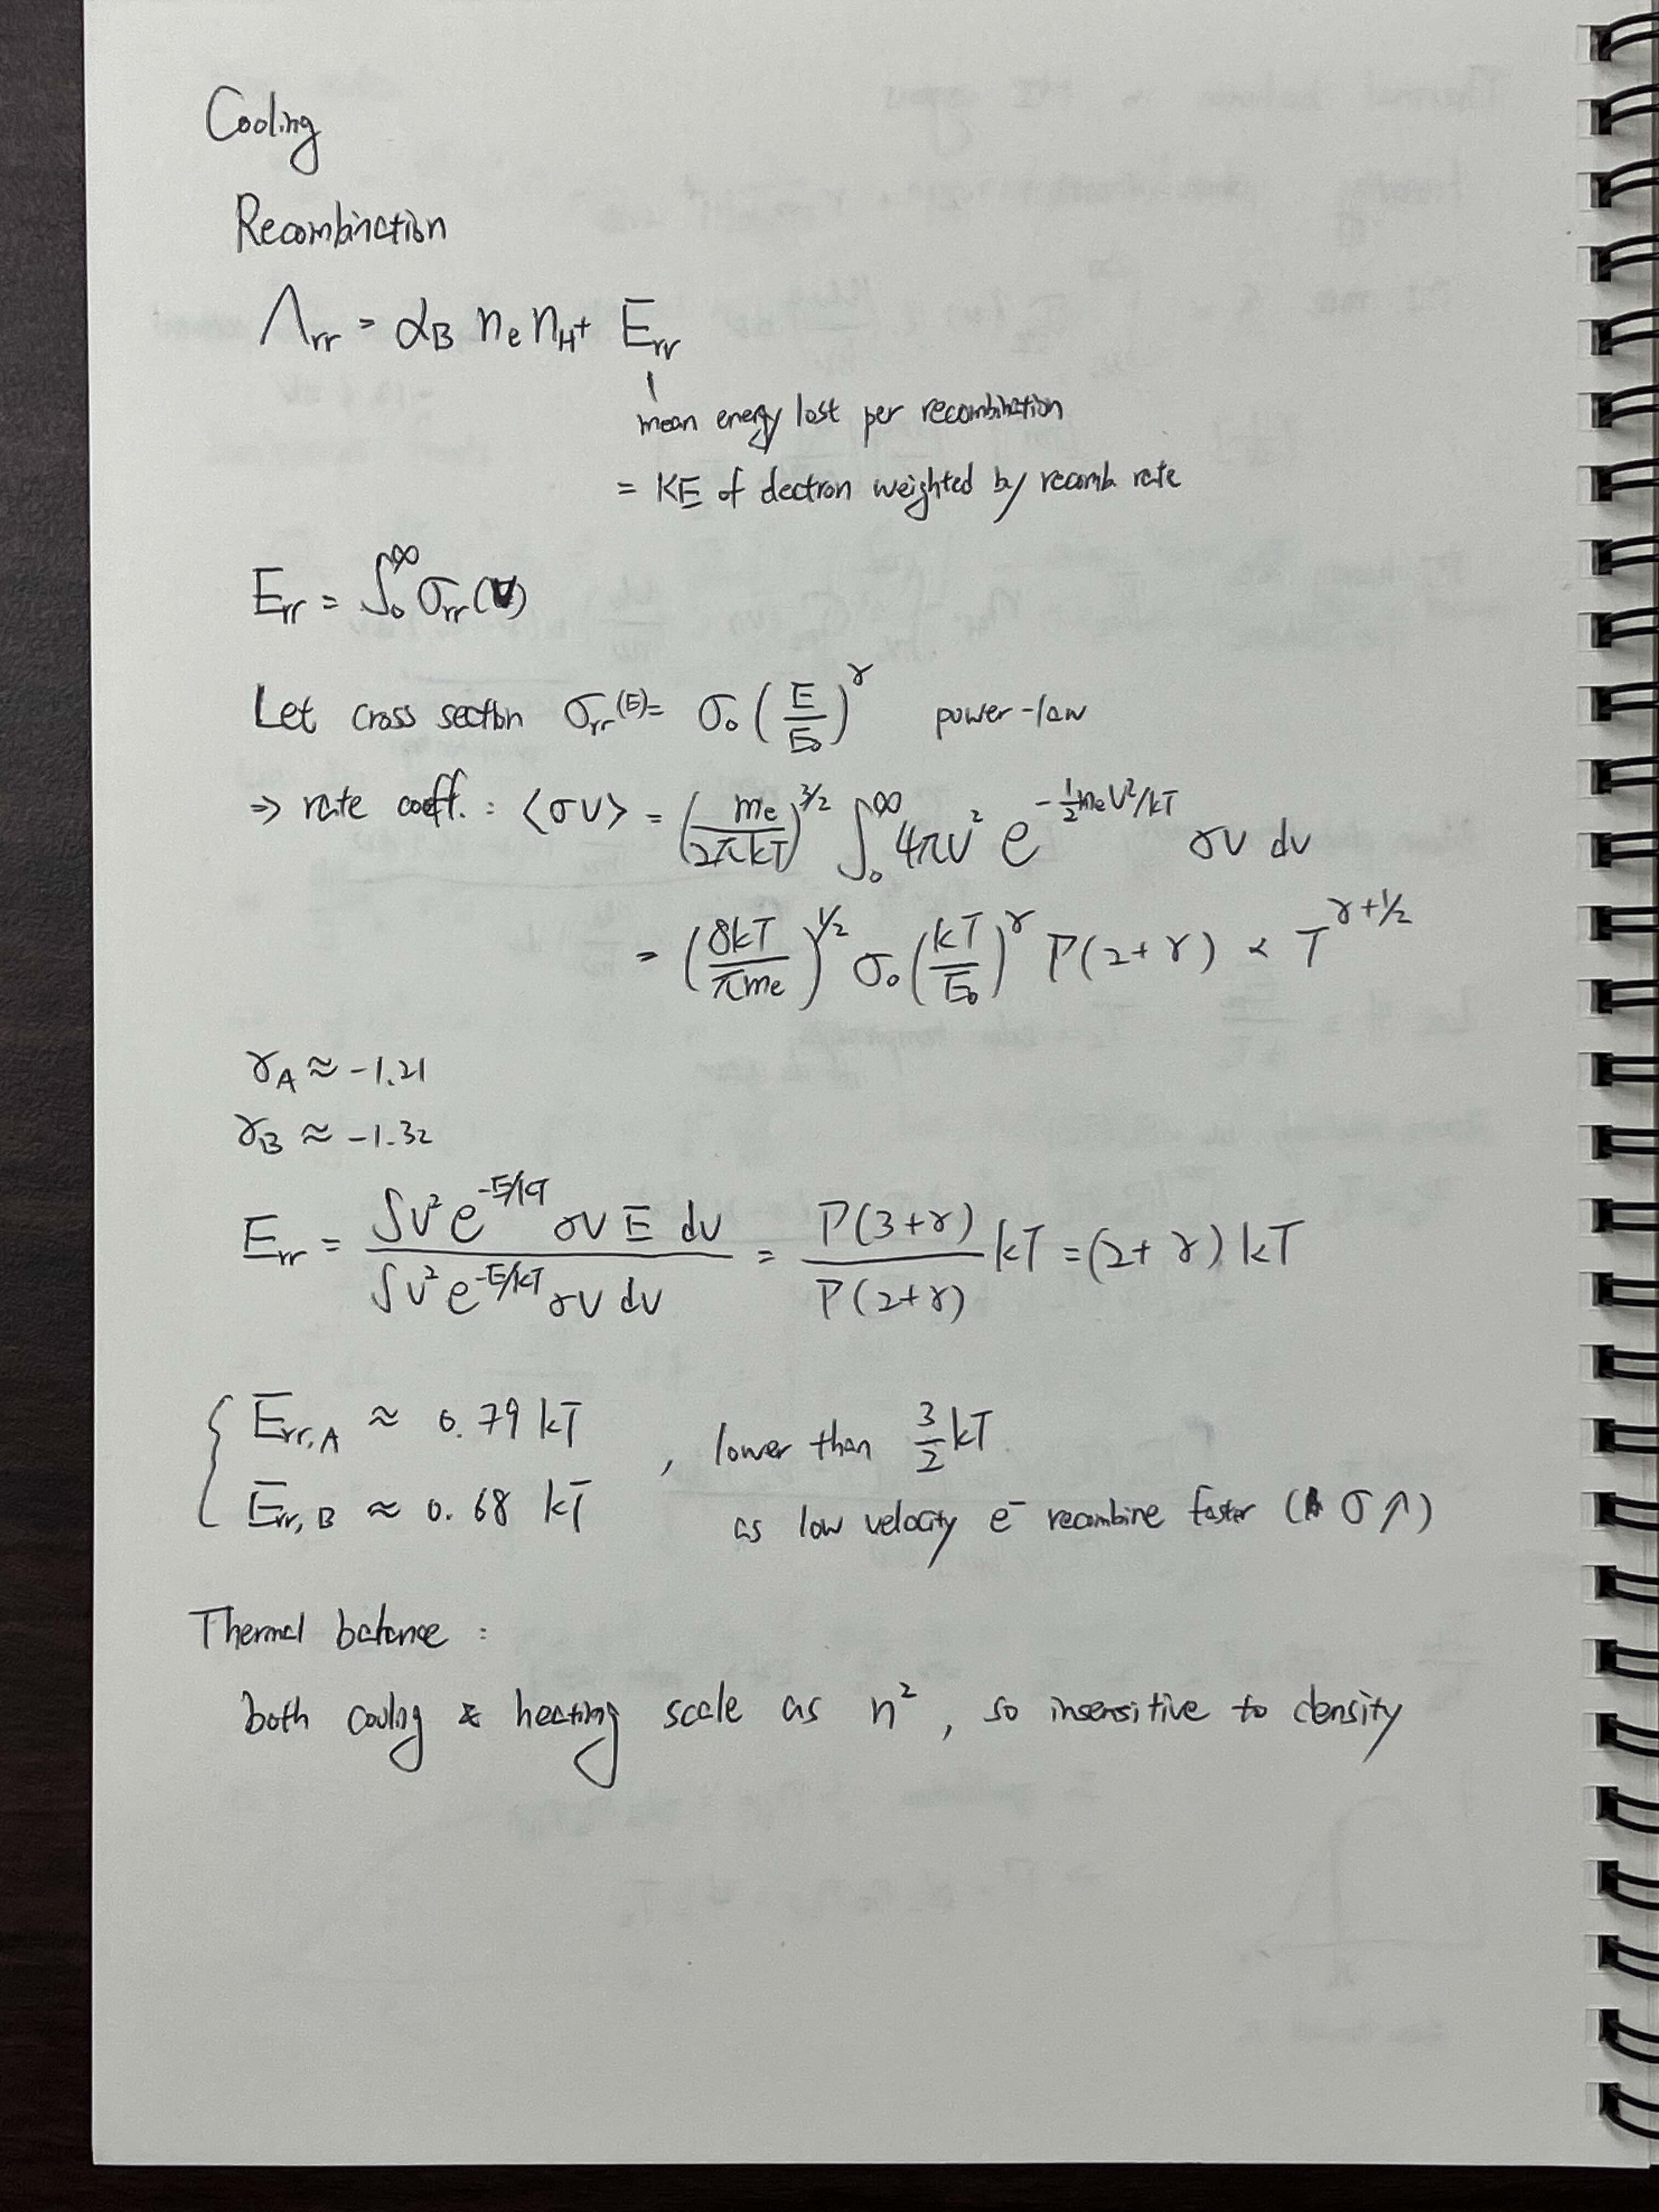 Cooling
Recombination
Λrr = αB ne nH+ Err
mean energy lost per recombination
= KE of electron weighted by recomb rate
Err = ∫₀^∞ σrr(v)
Let cross section σrr(E) = σ₀ (E/E₀)^γ power-law
⇒ rate coeff. : ⟨σv⟩ = (me/2πkT)^3/2 ∫₀^∞ 4πv² e^(-½meV²/kT) σv dv
= (8kT/πme)^1/2 σ₀ (kT/E₀)^γ Γ(2+γ) ∝ T^(γ+1/2)
γA ≈ -1.21
γB ≈ -1.32
Err = ∫v² e^(-E/kT) σv E dv / ∫v² e^(-E/kT) σv dv = Γ(3+γ)/Γ(2+γ) kT = (2+γ) kT
{ Err,A ≈ 0.79 kT , lower than 3/2 kT
Err,B ≈ 0.68 kT as low velocity e⁻ recombine faster (σ↑)
Thermal balance :
both cooling & heating scale as n², so insensitive to density